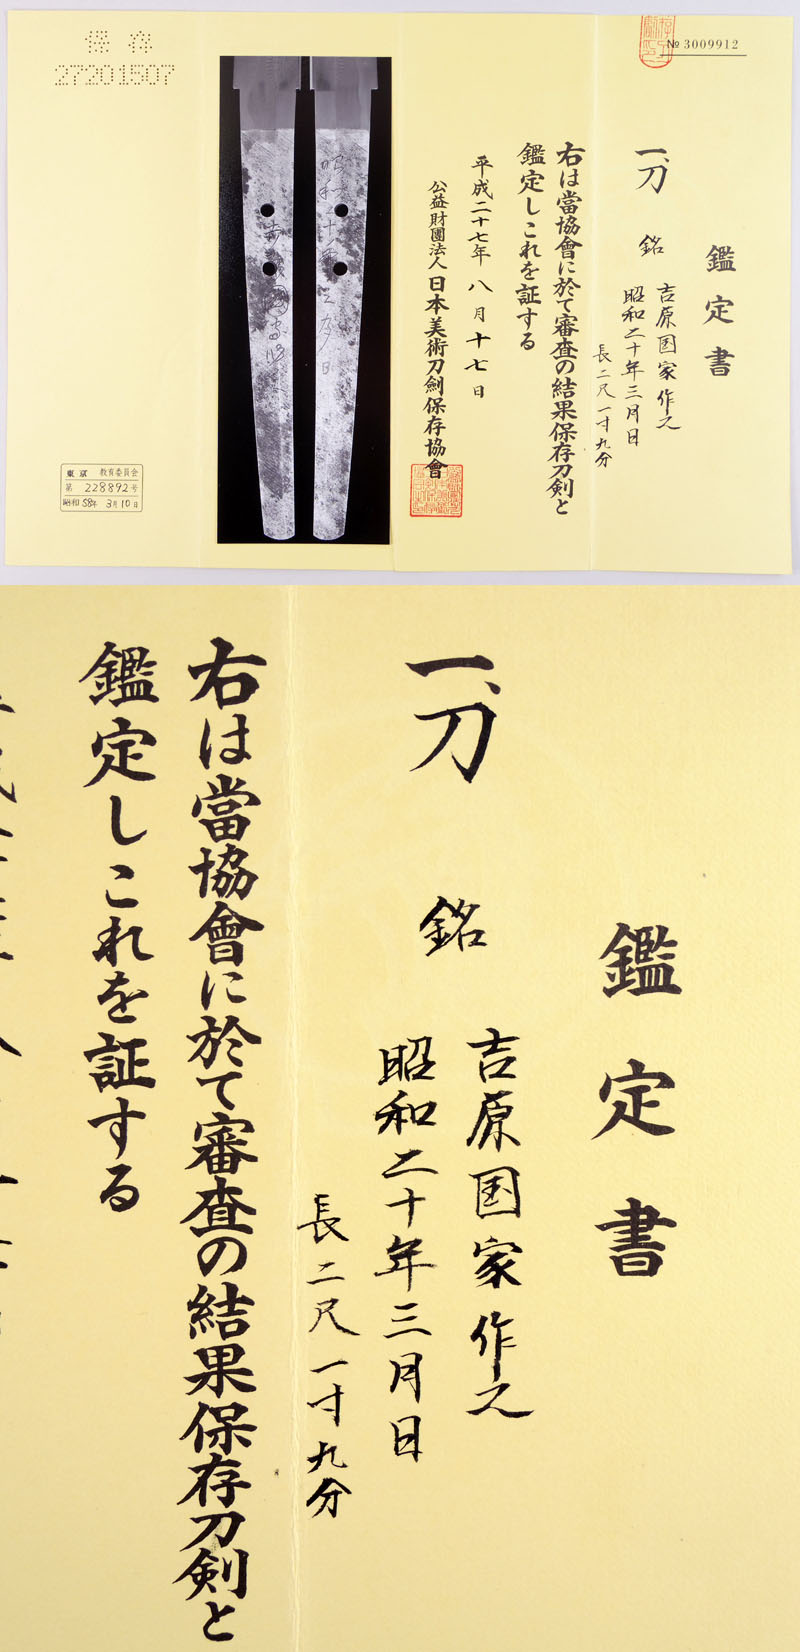 № 3009912
鑑定書
一、刀
銘
吉原国家作之
昭和二十年三月日
長二尺一寸九分
右は當協會に於て審査の結果保存刀剣と
鑑定しこれを証する
平成二十七年八月十七日
公益財團法人日本美術刀劍保存協會
保存
27201507
東京 教育委員会
第 228892 号
昭和 58年 3月10日
昭和二十年三月日
鑑定書
一、刀
銘
吉原国家作之
昭和二十年三月日
長二尺一寸九分
右は當協會に於て審査の結果保存刀剣と
鑑定しこれを証する